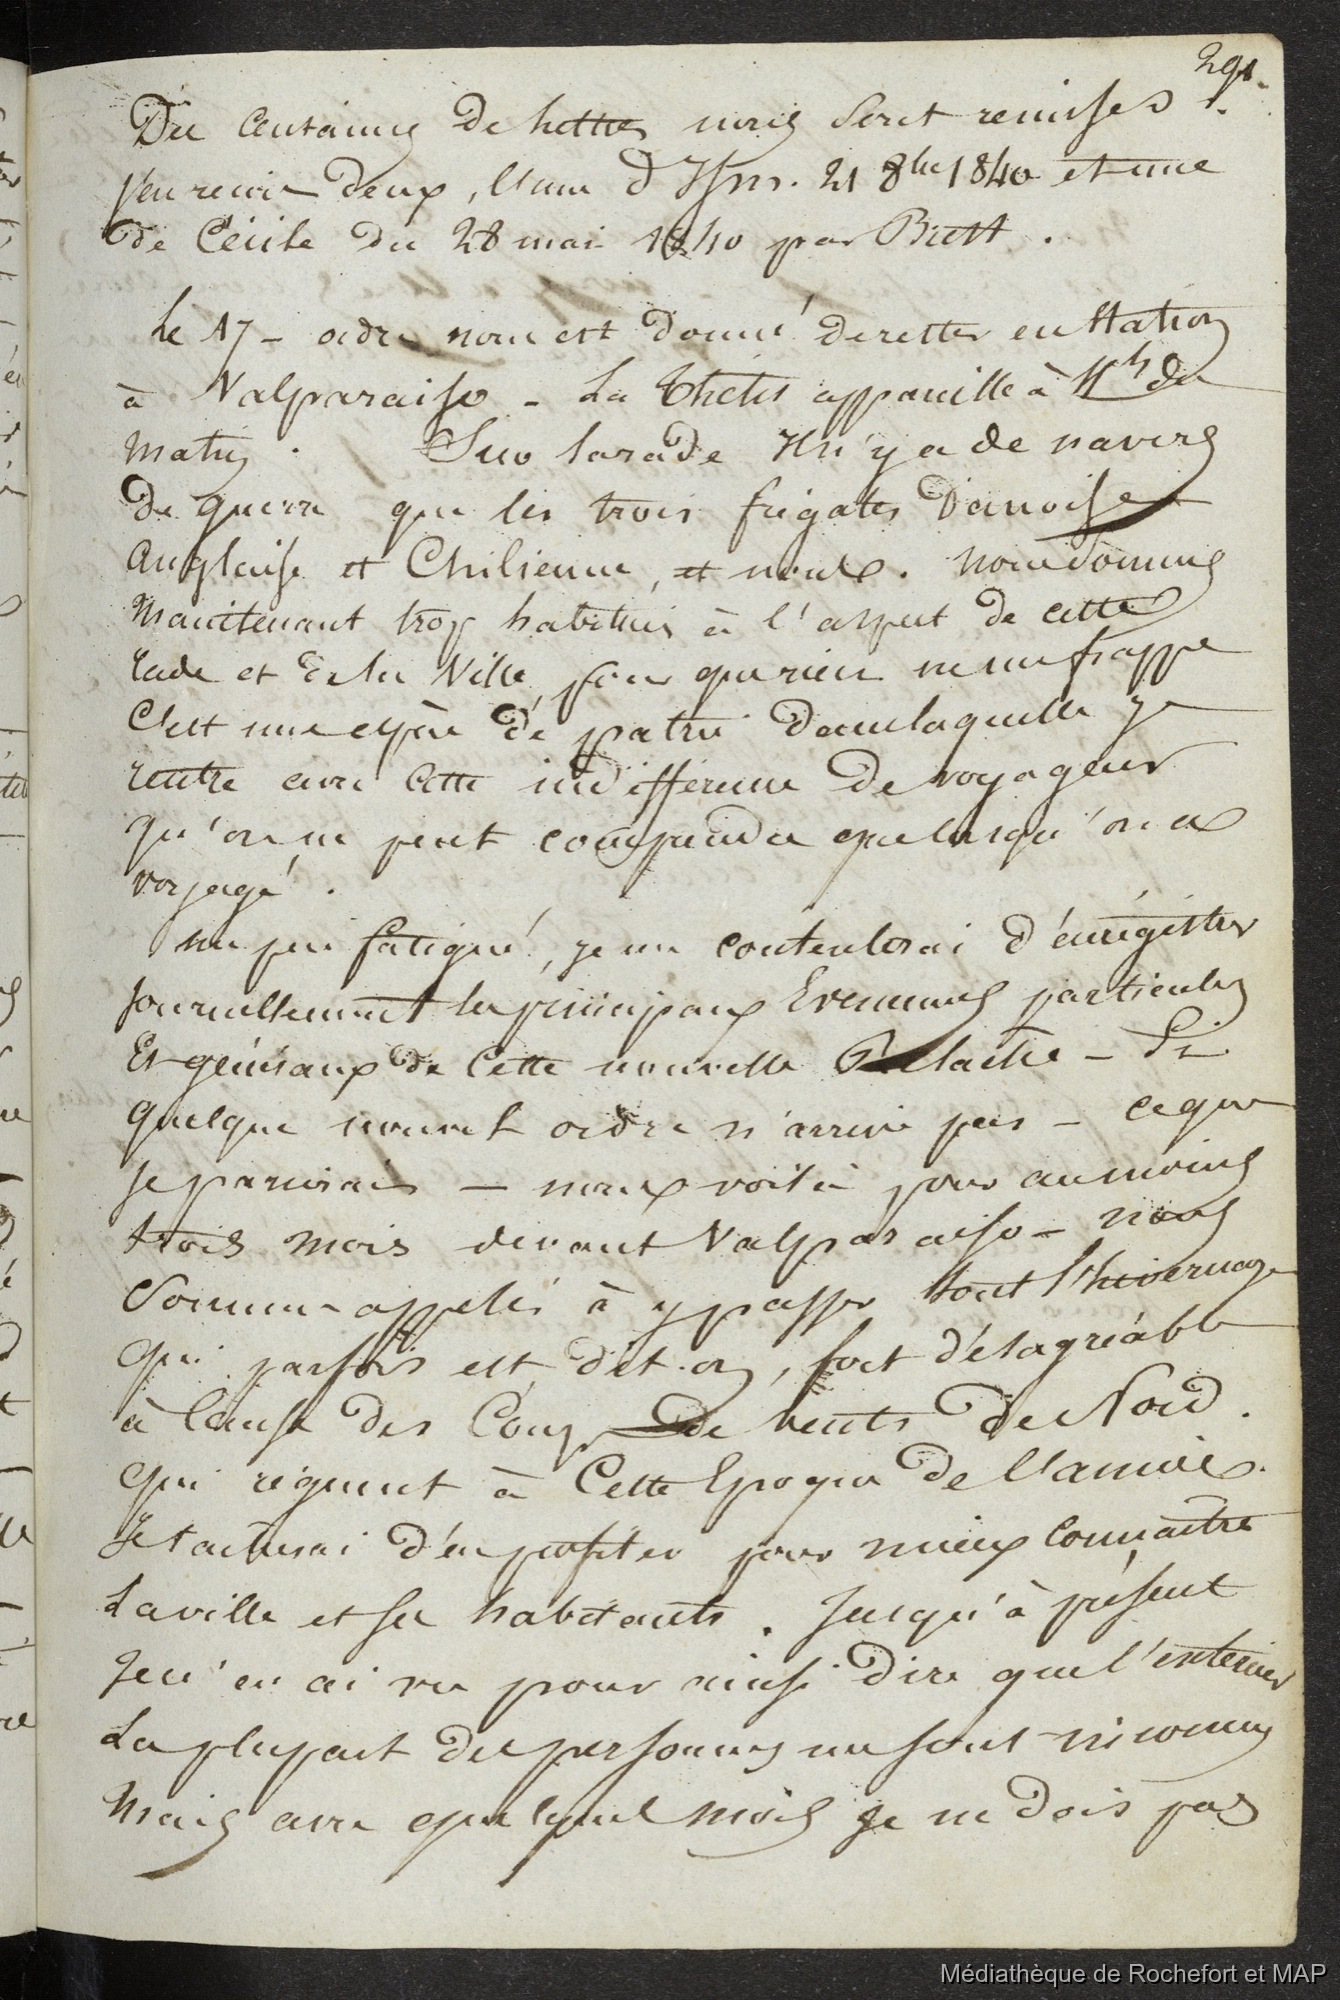 291.
Des centaines de lettres nous sont remises.
j'en reçois deux, l'une d 21 8bre 1840 et une
de Cécile du 28 mai 1840 par
Le 17 - ordre nous est donné de rester en station
à Valparaiso - La Thétis appareille à du
matin. Sur la rade Il n'y a de navires
de guerre que les trois frégates Danoise
anglaise et Chilienne, et nous. nous sommes
maintenant trop habitués à l'aspect de cette
rade et de la Ville, pour que rien ne me frappe
C'est une espèce de patrie dans laquelle je
rentre avec cette indifférence de voyageur
qu'on ne peut comprendre que lorsqu'on a
voyagé.
un peu fatigué, je me contenterai d'enrégistrer
journellement les principaux Evenemens particuliers
Et généraux de cette nouvelle Relache - Si
quelque nouvel ordre n'arrive pas - ce que
je parierais - nous voilà pour au moins
trois mois devant Valparaiso - nous
sommes appelés à y passer tout l'hivernage
qui parfois est, dit-on, fort désagréable
à cause des Coups de vents de Nord.
qui régnent à Cette Epoque de l'année.
Je tacherai d'en profiter pour mieux connaitre
La ville et ses habitants. Jusqu'à présent
Je n'en ai vu pour ainsi dire que l'extérieur
La plupart des personnes me sont inconnues
Mais avec quelques mois je ne dois pas
Médiathèque de Rochefort et MAP